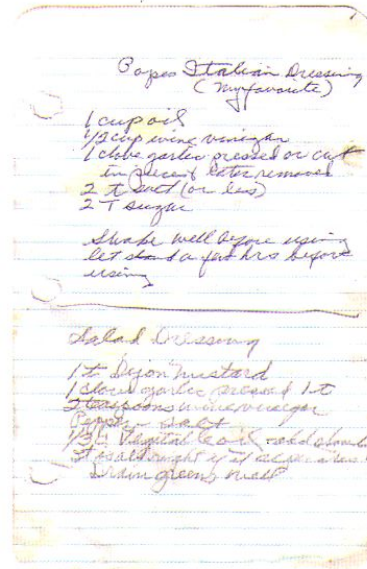 Papas Italian Dressing
(my favorite)
1 cup oil
1/2 cup wine vinegar
1 clove garlic pressed or cut
in pieces & later removed
2 t salt (or less)
2 T sugar
Shake well before using
let stand a few hrs before
using
Salad Dressing
1 t Dijon mustard
1 clove garlic pressed 1 t
2 teaspoons wine vinegar
Pepper - salt
1/3 c oil add slowly
drain greens well